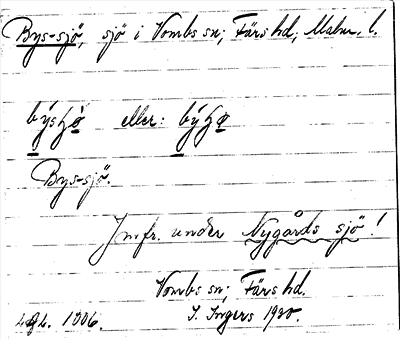 Bys-sjö, sjö i Vombs sn; Färs hd, Malm. l.
býsɧø̀ eller: býɧø
Bys-sjö.
Jmfr. under Nygårds sjö!
Vombs sn; Färs hd.
1006. I. Ingers 1920.